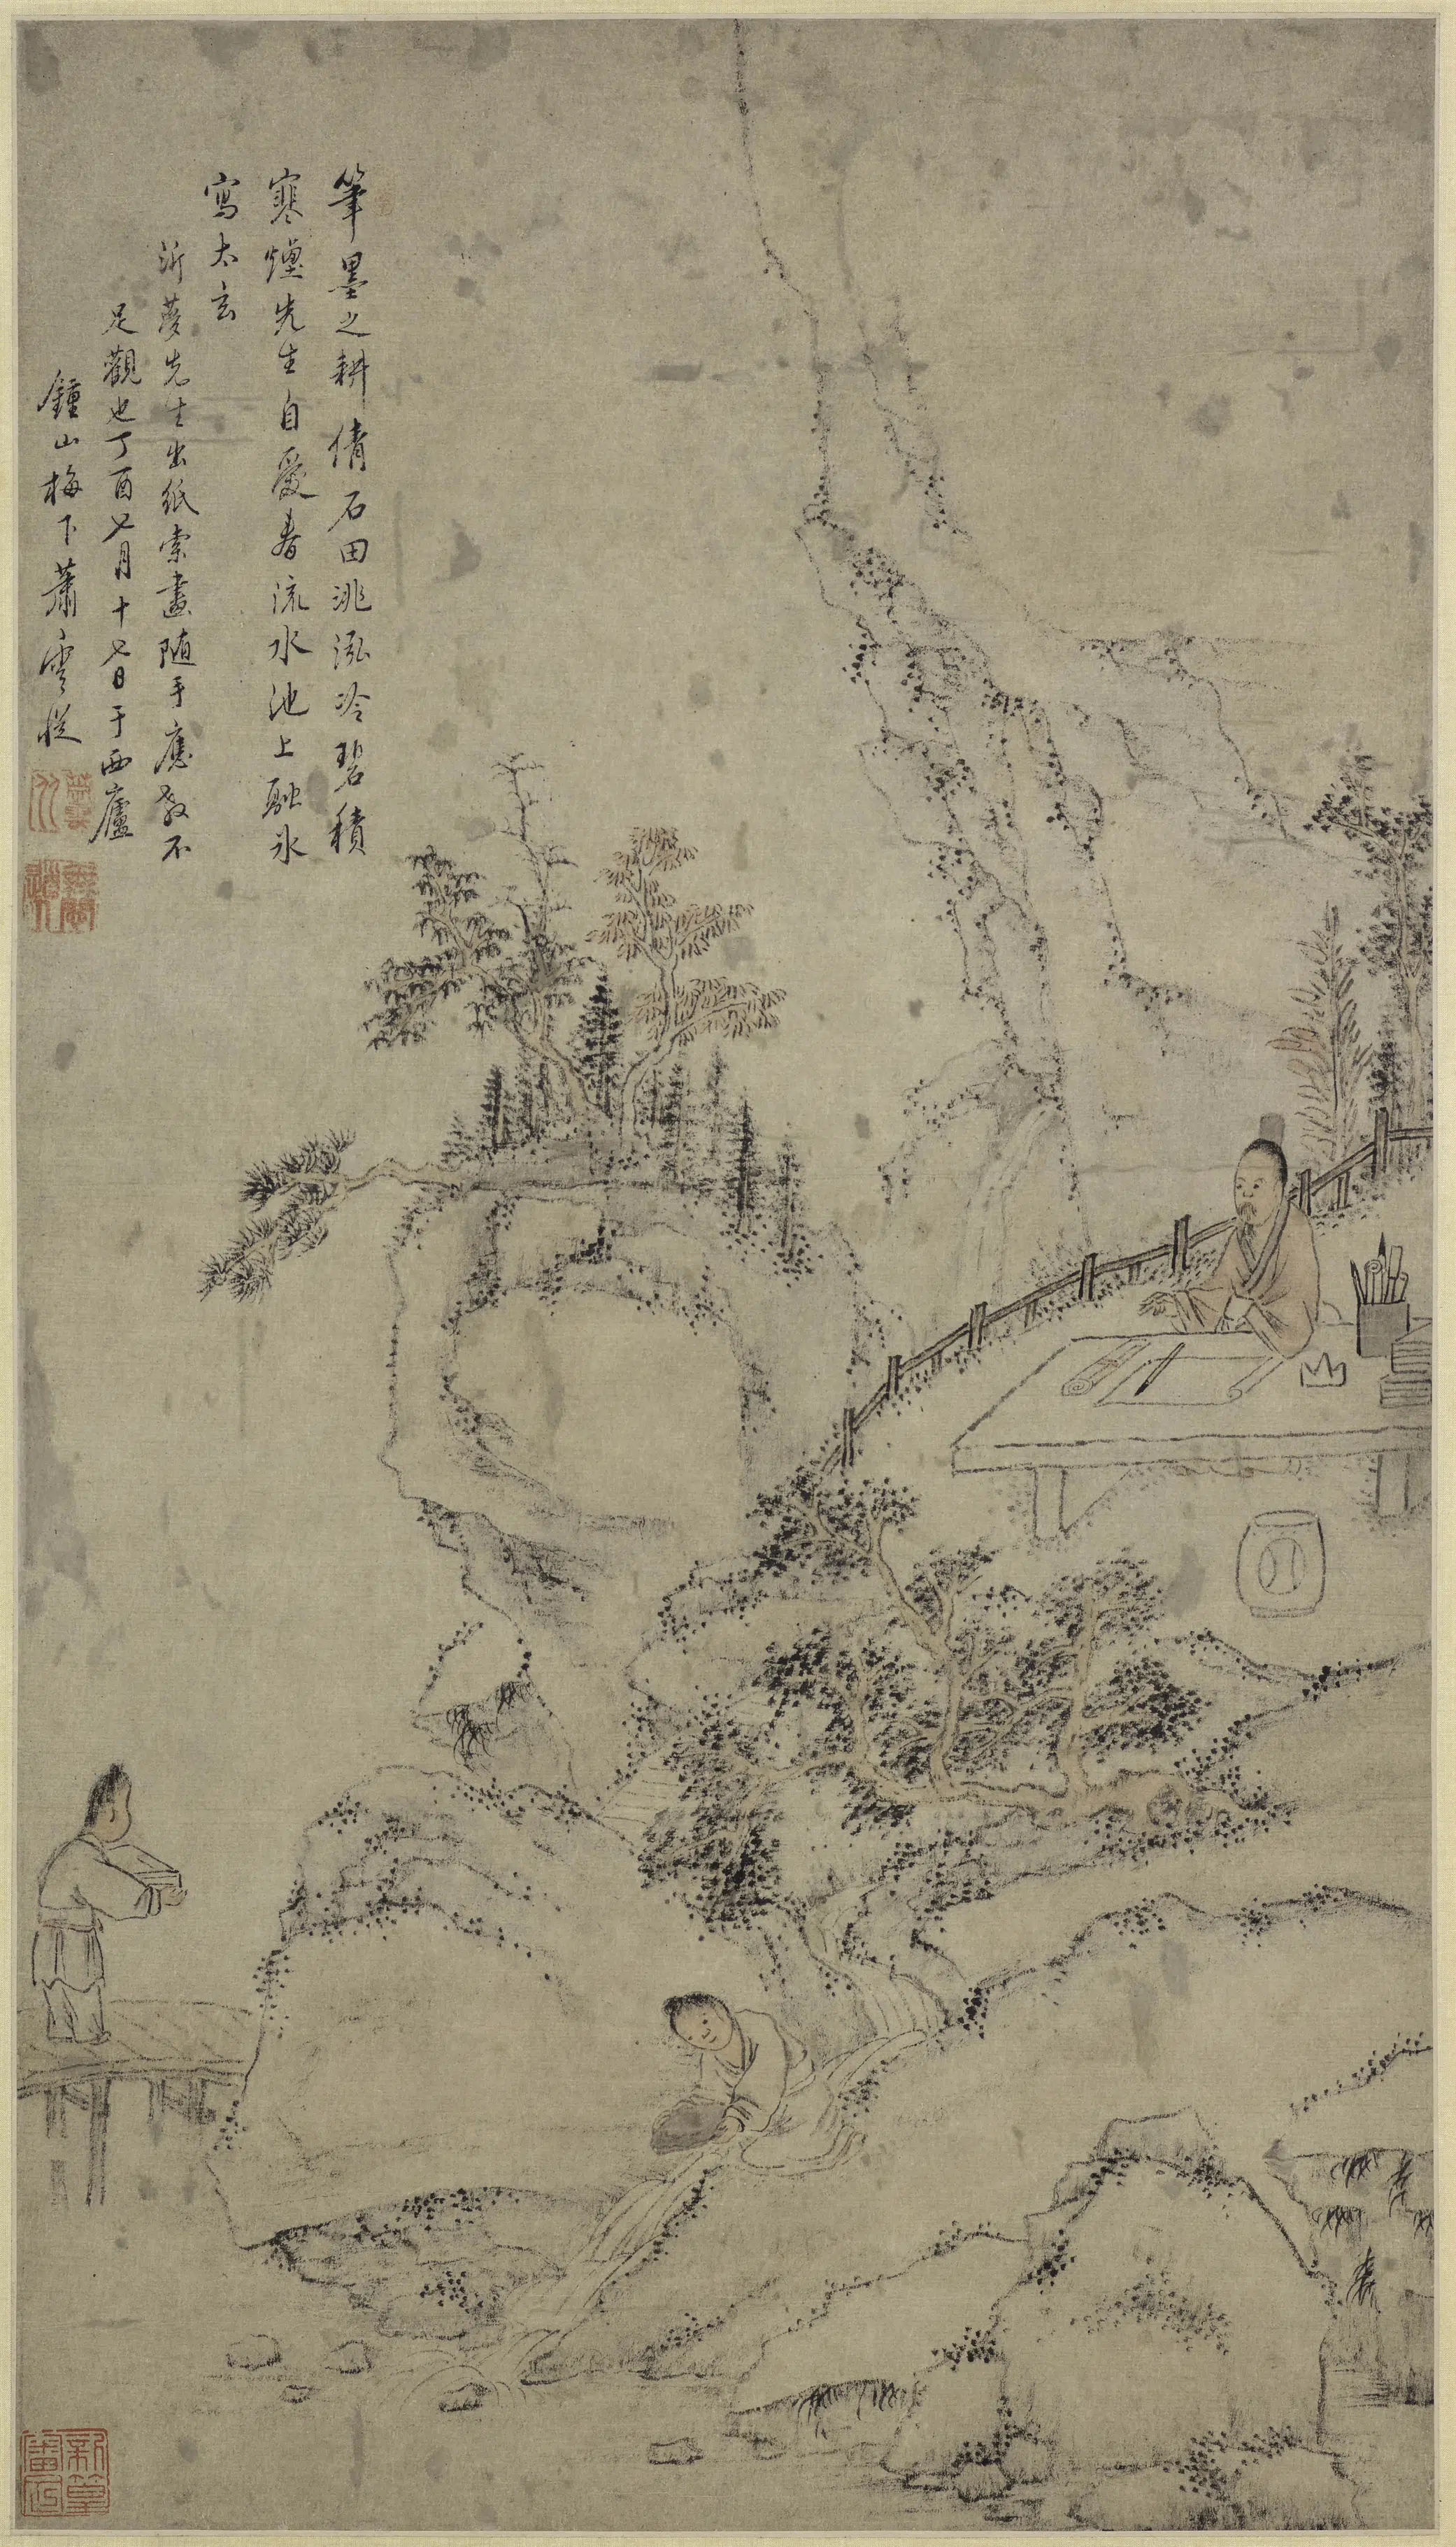 筆墨之耕倩石田洮泓冷碧積
寒煙先生自愛春流水池上融氷
寫太玄
沂夢先生出紙索畫随手應教不
足觀也丁酉七月十七日于西廬
鍾山梅下蕭雲從